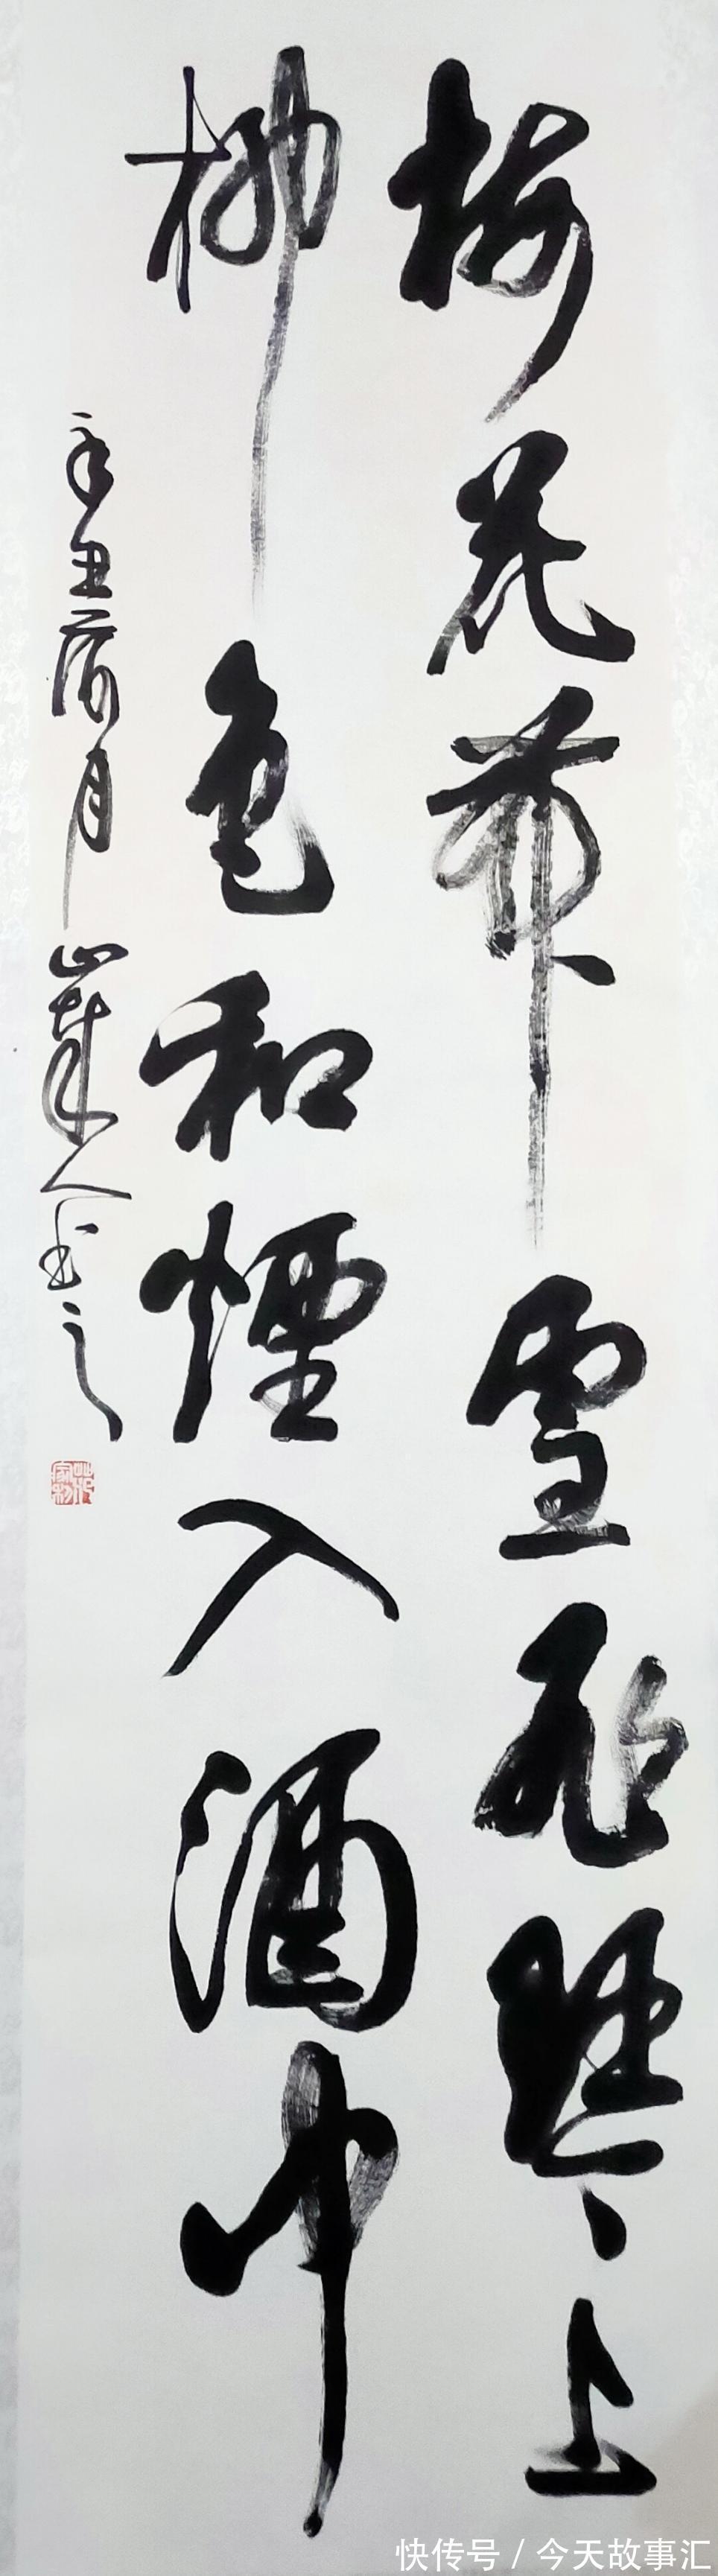 梅花带雪飞琴上
柳色和煙入酒中
辛丑荷月山
人书之
快传号／今天故事汇